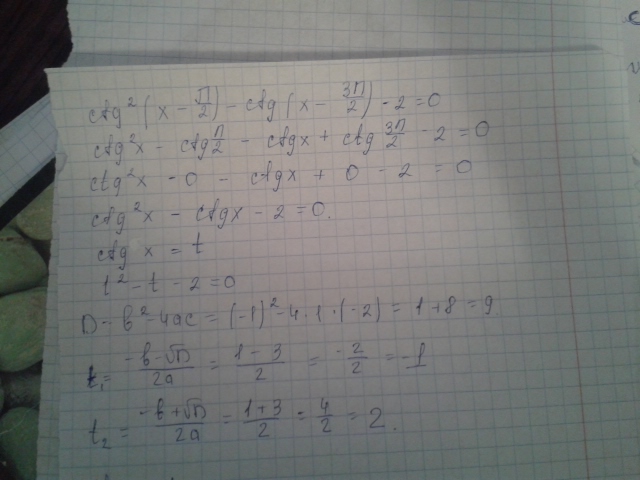 ctg²(x − π/2) − ctg(x − 3π/2) − 2 = 0
ctg²x − ctg π/2 − ctgx + ctg 3π/2 − 2 = 0
ctg²x − 0 − ctgx + 0 − 2 = 0
ctg²x − ctgx − 2 = 0.
ctg x = t
t² − t − 2 = 0
D = b² − 4ac = (−1)² − 4·1·(−2) = 1 + 8 = 9.
t₁ = (−b − √D)/2a = (1 − 3)/2 = −2/2 = −1
t₂ = (−b + √D)/2a = (1 + 3)/2 = 4/2 = 2.